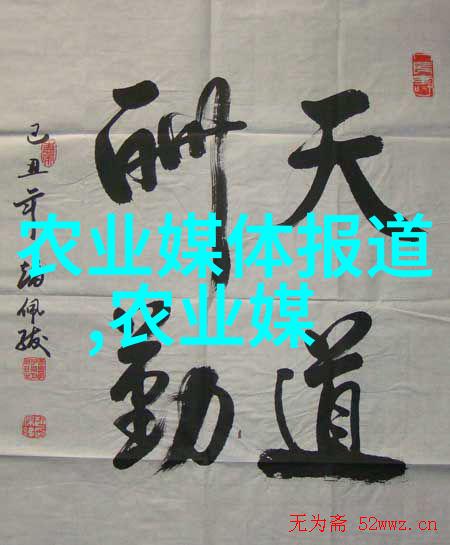 天道
酬勤
己丑年
农业媒体报道
,农业媒
无为斋 52wwz.cn